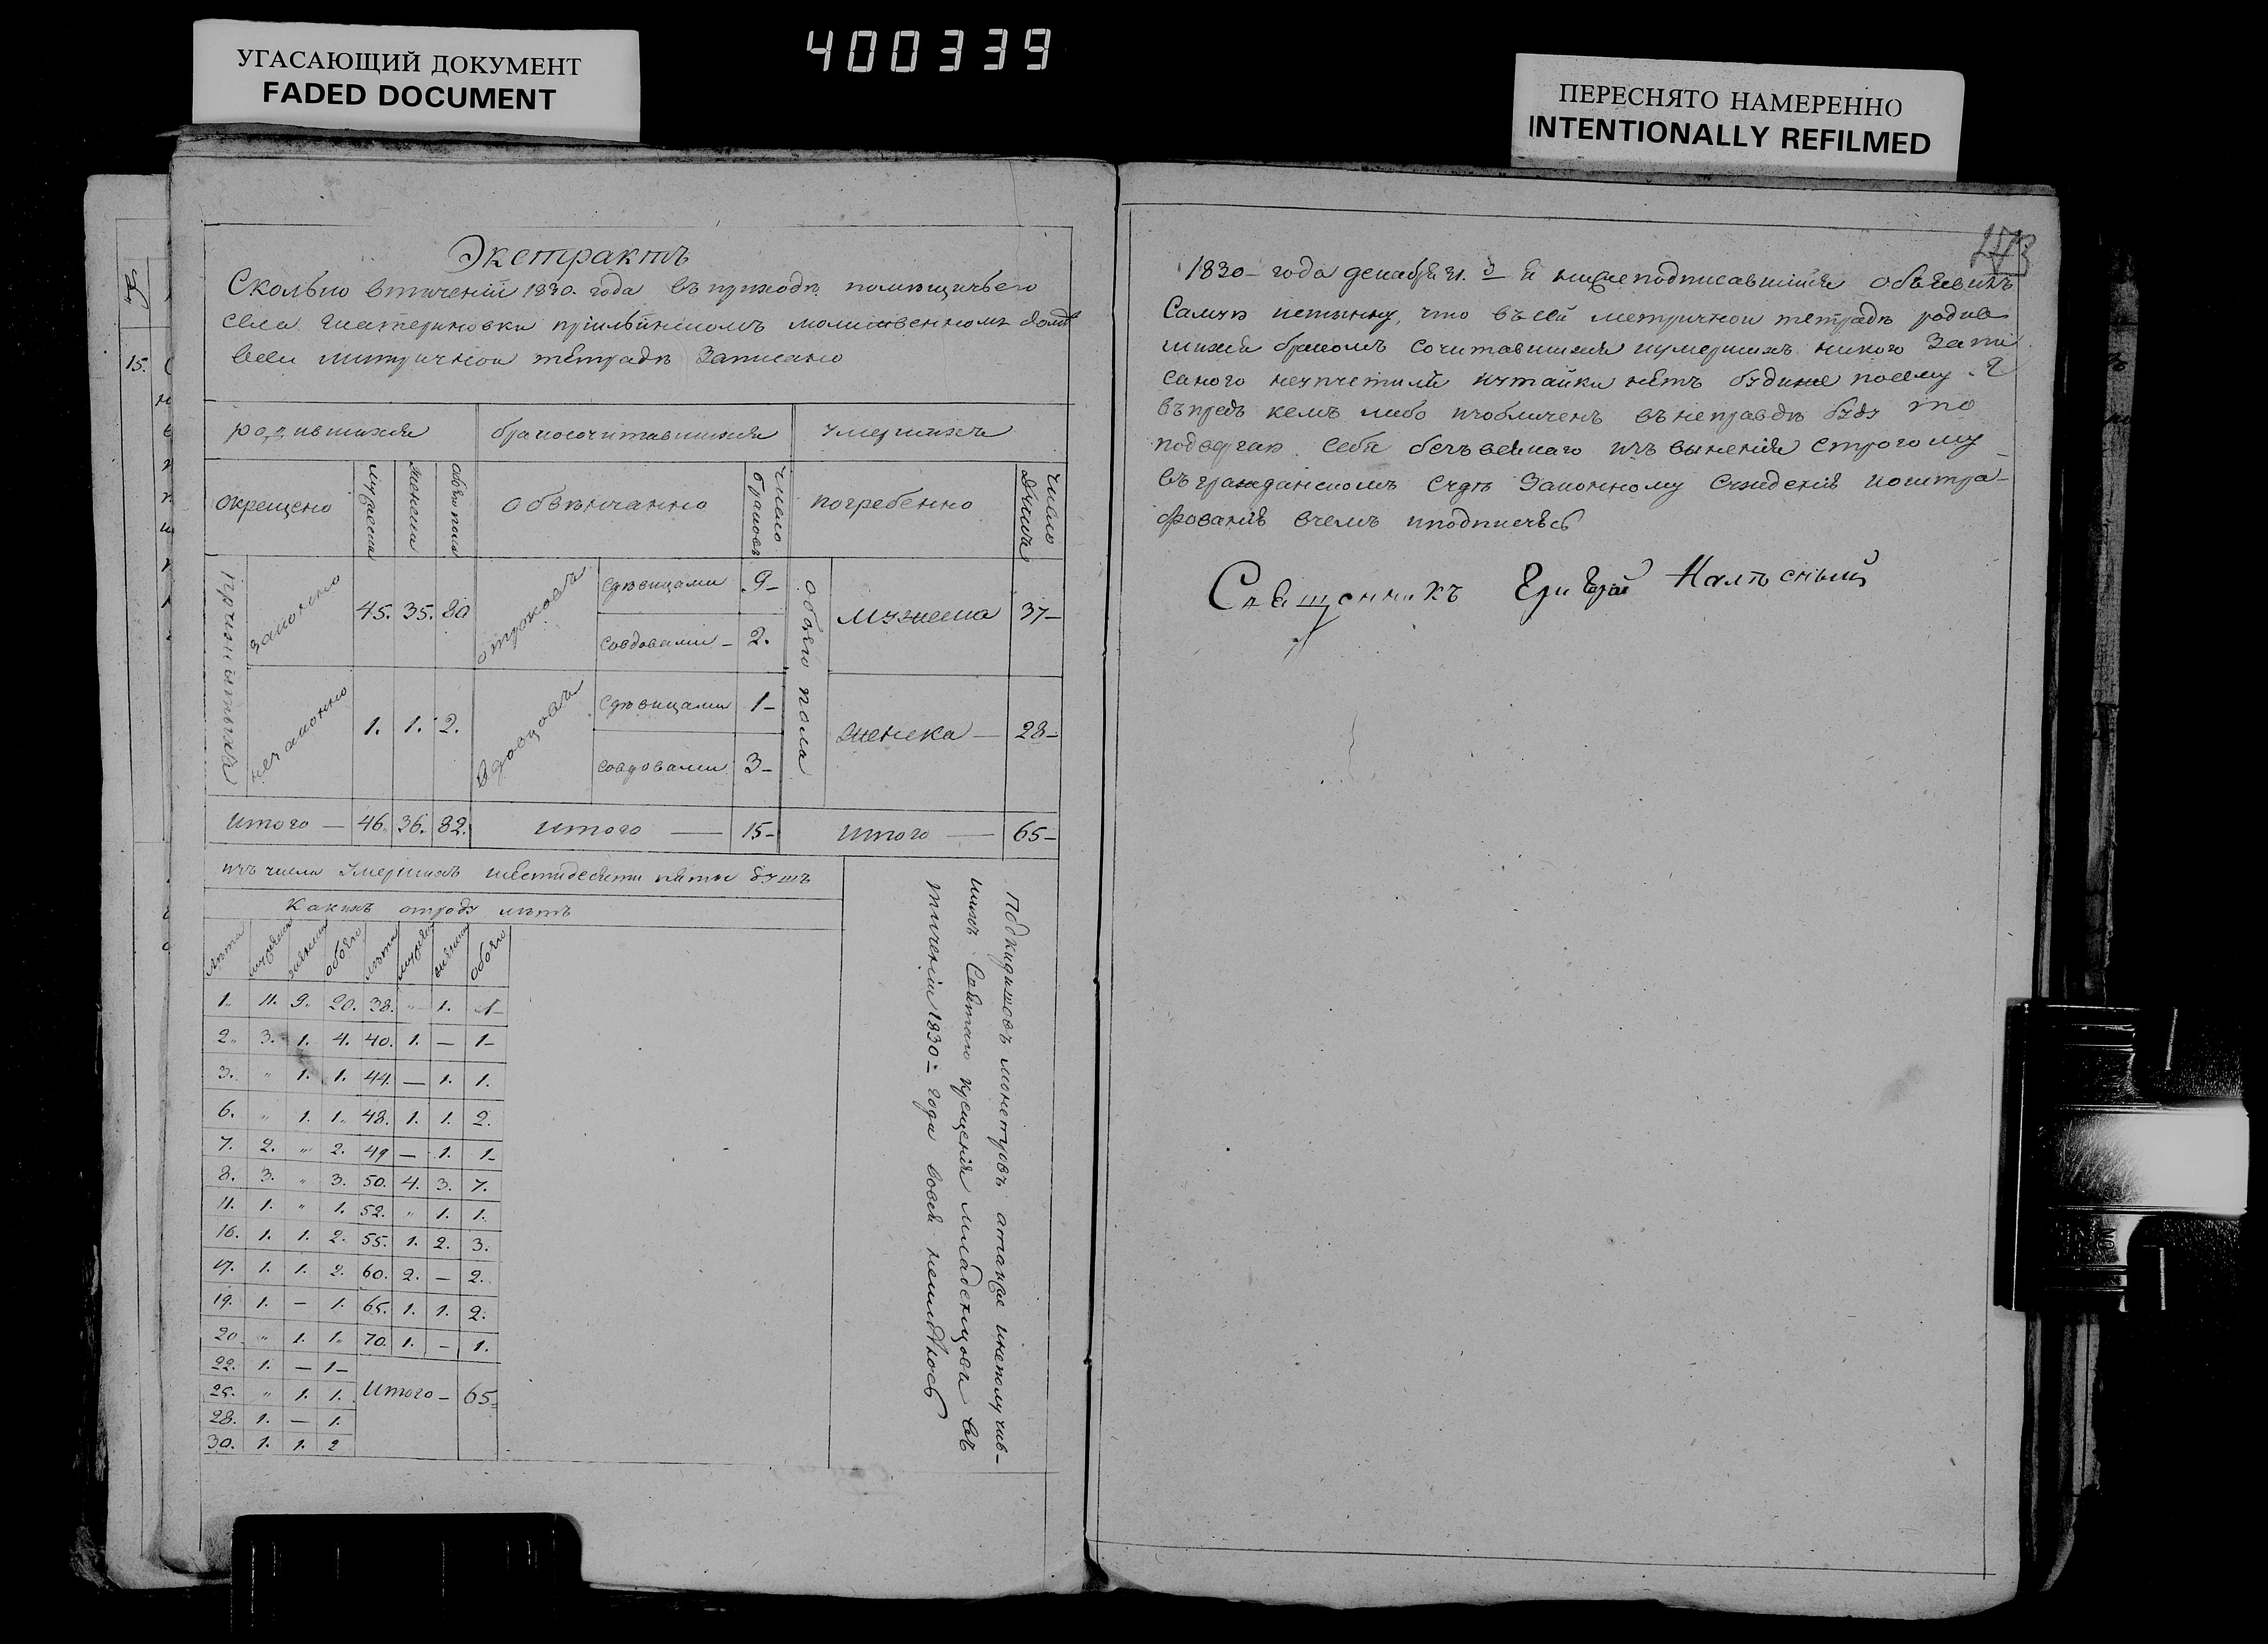 УГАСАЮЩИЙ ДОКУМЕНТ
FADED DOCUMENT
400339
ПЕРЕСНЯТО НАМЕРЕННО
INTENTIONALLY REFILMED
15.
Экстрактъ
Сколько втечении 1830. года въ приходѣ помѣщичьего
села Екатериновки молитвенномъ домѣ
всей метричной тетрадѣ записано
родившихся бракосочитавшихся умершихъ
окрещено мужеска женска обоего пола обвѣнчанно число браковъ погребенно число душъ
законно 45. 35. 80 отроковъ сдѣвицами 9- обоего пола мужеска 37-
совдовами - 2.
незаконно 1. 1. 2. вдовцовъ сдѣвицами 1- женска — 28-
совдовами 3-
итого — 46. 36. 82. итого — 15- итого — 65-
изъ числа умершихъ шестидесяти пяти душъ
Какихъ отроду лѣтъ
лѣта мужеска женска обоего лѣта мужеска женска обоего
1. 11. 9. 20. 38. " 1. 1-
2. 3. 1. 4. 40. 1. — 1-
3. " 1. 1. 44. — 1. 1.
6. " 1. 1. 48. 1. 1. 2.
7. 2. " 2. 49 — 1. 1-
8. 3. " 3. 50. 4. 3. 7.
11. 1. " 1. 52. " 1. 1.
16. 1. 1. 2. 55. 1. 2. 3.
17. 1. 1. 2. 60. 2. — 2.
19. 1. — 1. 65. 1. 1. 2.
20. " 1. 1. 70. 1. — 1.
22. 1. — 1-
25. " 1. 1. Итого - 65
28. 1. — 1.
30. 1. 1. 2
Подкидишовъ монструовъ атакже инеполучив-
шихъ Святаго крещения младенцовъ въ
течении 1830 = года вовсе неимѣлось
273
1830 - года декабря 31. я нижеподписавшийся объявилъ
Самую истинну, что въсей метричной тетрадѣ родив
шихся бракомъ сочитавшихся иумершихъ никого запи
саного неупустилъ иутайки нѣтъ будиже посему я
въпредь кемъ либо изобличенъ въ неправдѣ буду то
подвергаю себя безъ всякаго изъвинения строгому
въгражданскомъ судѣ законному суждению иоштра-
фованию вчемъ иподписуюсь
Священникъ Григорий